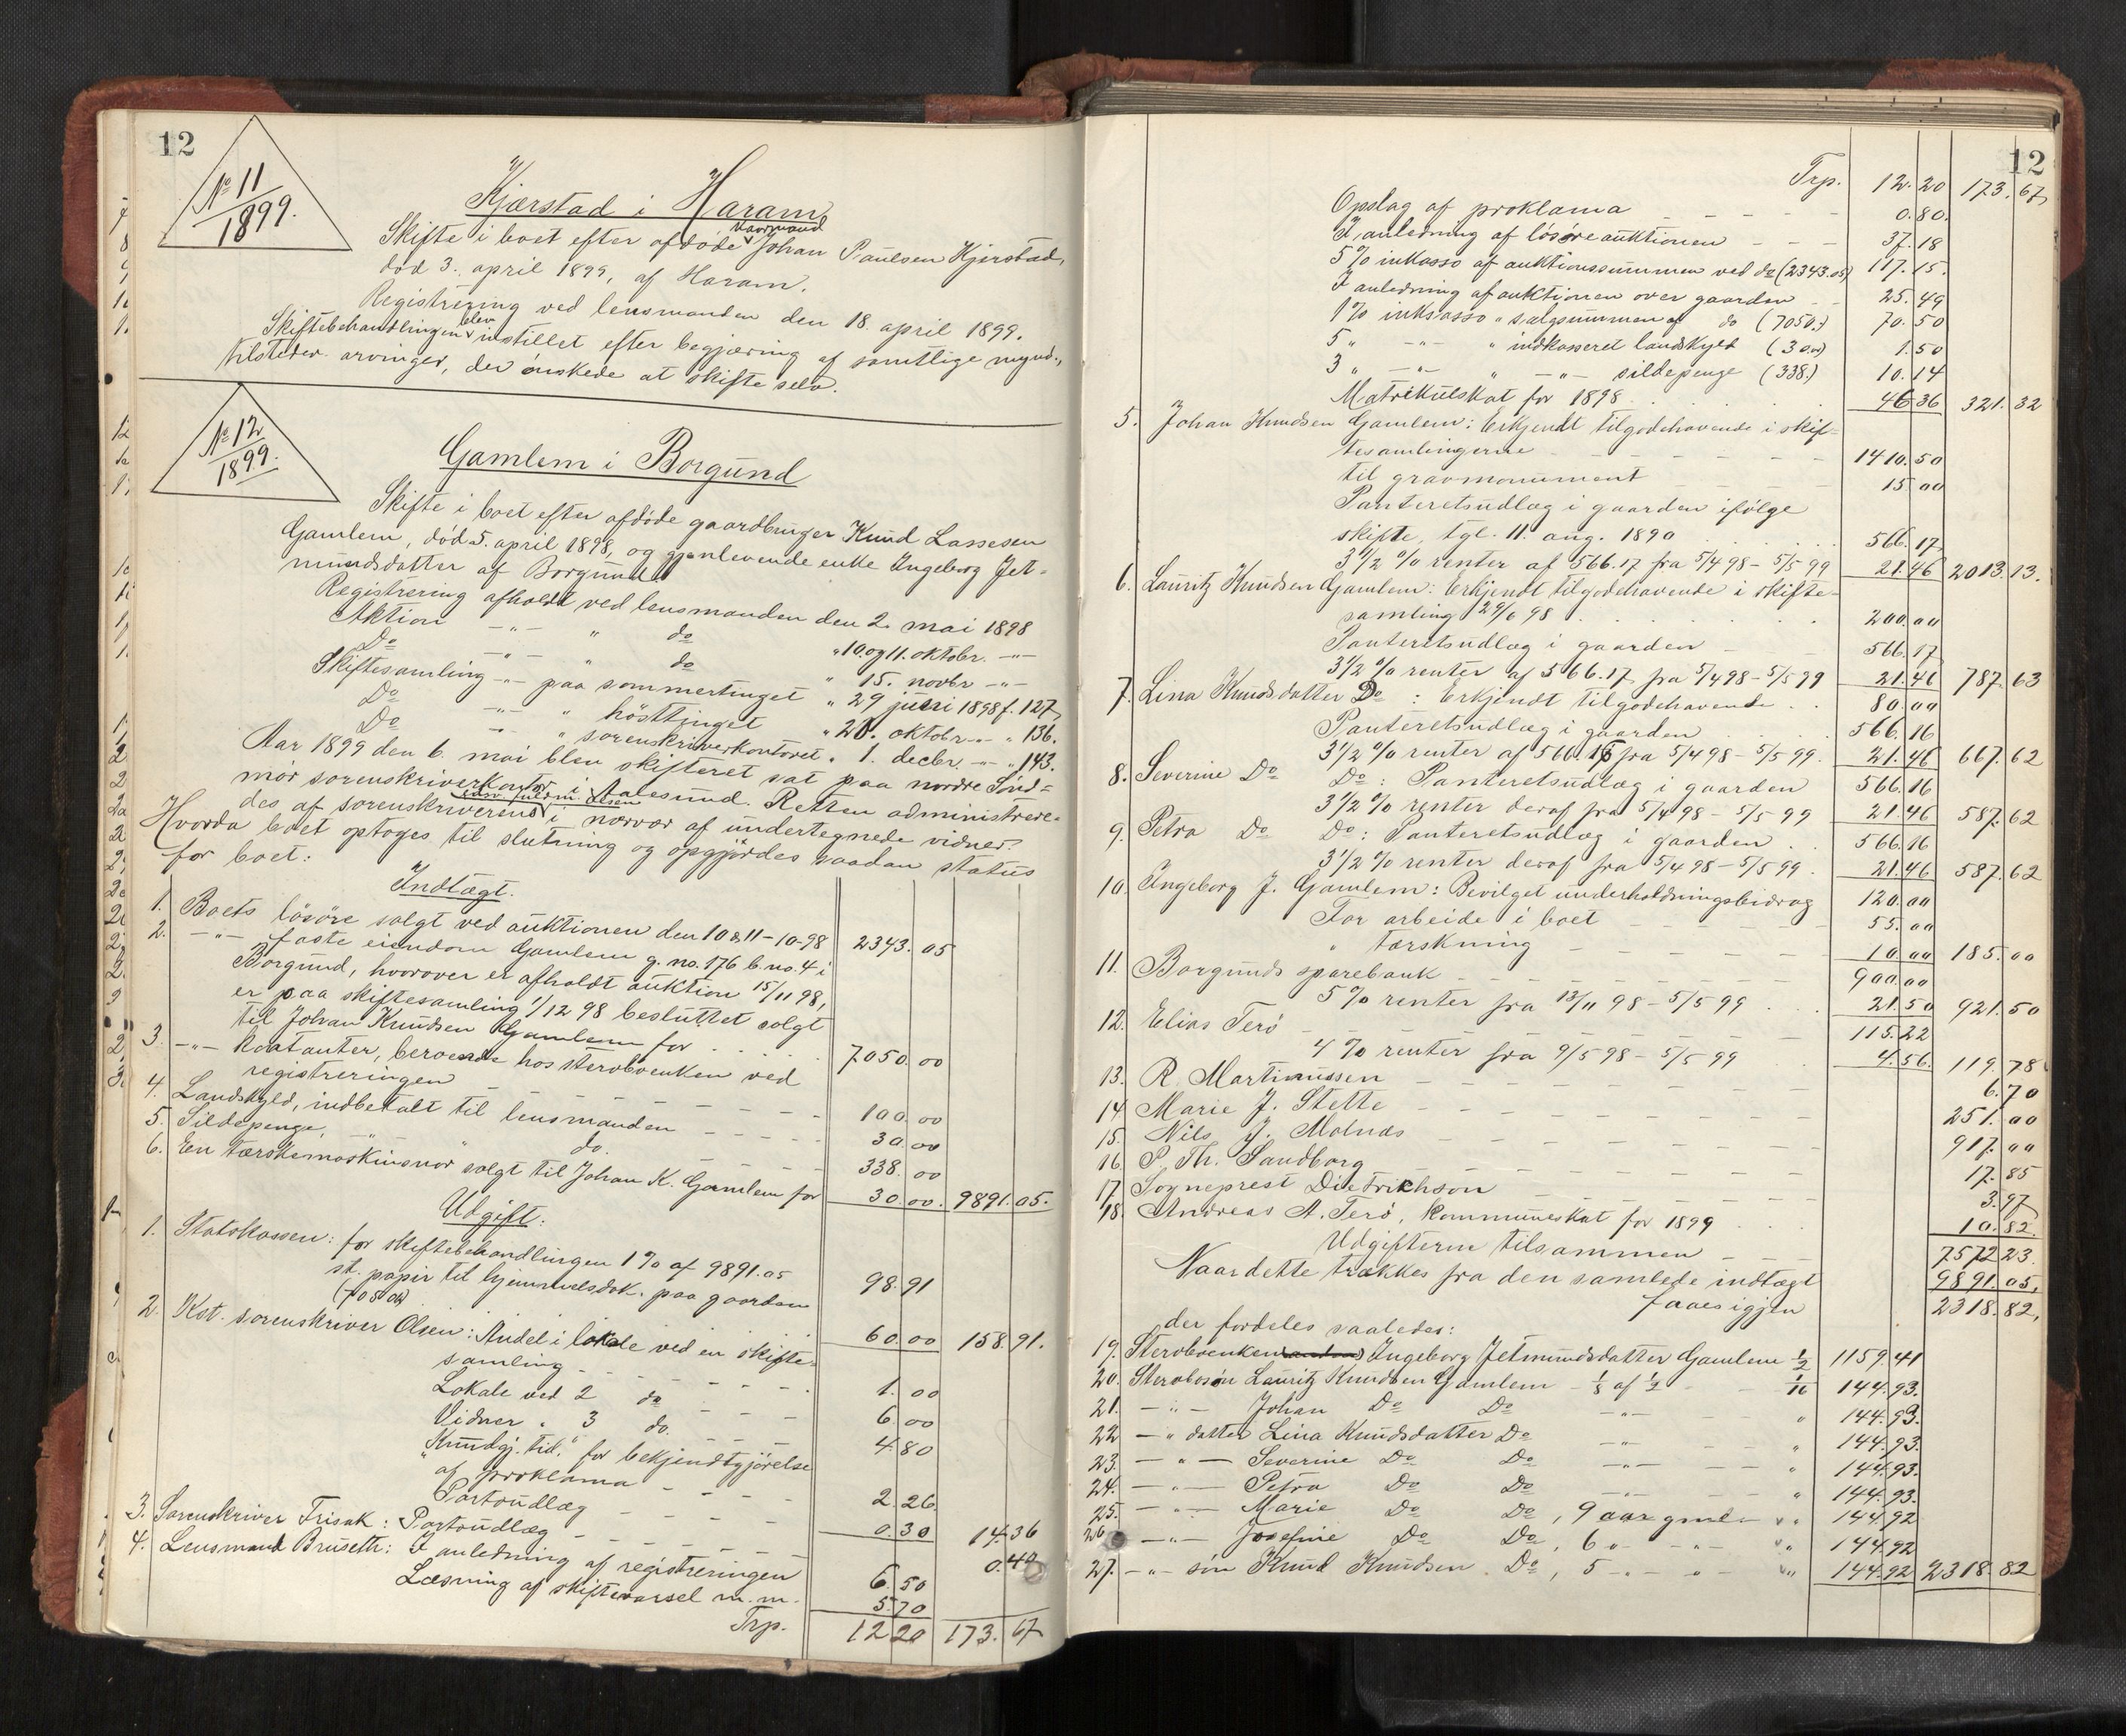 12
No 11
1899.
Kjærstad i Haram
Skifte i boet efter afdøde Johan Paulsen Kjærstad,
død 3. april 1899, af Haram.
Registrering ved lensmanden den 18. april 1899.
Skiftebehandlingen blev instillet efter begjæring af samtlige mynd.,
tilstedev. arvinger, der ønskede at skifte selv.
No 12
1899.
Gamlem i Borgund
Skifte i boet efter afdøde gaardbruger Knud Lassesen
Gamlem, død 5. april 1898, og gjenlevende enke Ingeborg Jet-
mundsdatter af Borgund
Registrering afholdt ved lensmanden den 2. mai 1898
Aktion -"- " do " 10. og 11. oktobr. -"-
Do -"- " do " 15. novbr -"-
Skiftesamling -"- paa sommertinget " 29 juni 1898 f. 127,
Do -"- " høsttinget " 20. oktobr. -"- " 136.
Do -"- " sorenskriverkontoret " 1. decbr. -"- " 143.
Aar 1899 den 6. mai blev skifteret sat paa nordre Sønd=
mør sorenskriverkontor i Aalesund. Retten administrere-
des af sorenskriverens edsv. fuldm. Olsen i nærvær af undertegnede vidner.
Hvorda boet optoges til slutning og opgjørdes saadan status
for boet:
Indtægt.
1. Boets løsøre solgt ved auktionen den 10 & 11-10-98 2343.05
2. -"- faste eiendom Gamlem g. no. 176 b. no. 4 i
Borgund, hvorover er afholdt auktion 15/11 98,
er paa skiftesamling 1/12 98 besluttet solgt
til Johan Knudsen Gamlem for . . . . 7050.00
3. -"- kontanter, beroende hos stervboenken ved
registreringen - - - - - - 100.00
4. Landskyld, indbetalt til lensmanden - - - - 30.00
5. Sildepenge, " " do. - - - 338.00
6. En tærskemaskinsnor solgt til Johan K. Gamlem for 30.00. 9891.05.
Udgift:
1. Statskassen: for skiftebehandlingen 1% af 9891.05 98.91
st. papir til hjemmelsdok. paa gaarden
(7050) 60.00 158.91.
2. Kst. sorenskriver Olsen: Andel i lokale ved en skifte-
samling - - - - 1.00
Lokale ved 2 do - - - 6.00
Vidner " 3 do. - - - 4.80
"Kundgj. tid." for bekjendtgjørelse
af proklama - - - - 2.26
Portoudlæg - - - - 0.30 14.36
3. Sorenskriver Frisak: Portoudlæg - - - - 0.40
4. Lensmand Bruseth: I anledning af registreringen 6.50
Læsning af skiftevarsel m. m. 5.70
Trp. 12.20 173.67
12
Trp. 12.20 173.67
Opslag af proklama - - - - - 0.80.
I anledning af løsøreauktionen - - - 37.18
5% inkasso af auktionssummen ved do (2343.05) 117.15.
I anledning af auktionen over gaarden - - 25.49
1% inkasso " salgsummen af do (7050.) 70.50
5 " -"- " indkasseret landskyld (30.00) 1.50
3 " -"- " -"- sildepenge (338.) 10.14
Matrikulskat for 1898 . . . . 46.36 321.32
5. Johan Knudsen Gamlem: Erkjendt tilgodehavende i skif=
tesamlingerne - - - - - - 1410.50
til gravmonument - - - - 15.00
Panteretsudlæg i gaarden ifølge
skifte, tgl. 11. aug. 1890 . . . . . 566.17
3 1/2 % renter af 566.17 fra 5/4 98 - 5/5 99 21.46 2013.13.
6. Lauritz Knudsen Gamlem: Erkjendt tilgodehavende i skifte-
samling 29/6 98 . . . . . . 200.00
Panteretsudlæg i gaarden - - - 566.17
3 1/2 % renter af 566.17 fra 5/4 98 - 5/5 99 21.46 787.63
7. Lina Knudsdatter Do : Erkjendt tilgodehavende . . 80.00
Panteretsudlæg i gaarden . . . . 566.16
3 1/2 % renter af 566.16 fra 5/4 98 - 5/5 99. 21.46 667.62
8. Severine Do Do : Panteretsudlæg i gaarden 566.16
3 1/2 % renter deraf fra 5/4 98 - 5/5 99 21.46 587.62
9. Petra Do Do : Panteretsudlæg i gaarden . . 566.16
3 1/2 % renter deraf fra 5/4 98 - 5/5 99 . 21.46 587.62
10. Ingeborg J. Gamlem: Bevilget underholdningsbidrag 120.00
For arbeide i boet - - - - - 55.00
" tærskning - - - - - 10.00 185.00
11. Borgunds sparebank - - - - - - 900.00
5% renter fra 13/11 98 - 5/5 99 . . . 21.50 921.50
12. Elias Terø - - - - - - 115.22
4 % renter fra 9/5 98 - 5/5 99 4.56. 119.78
13. R. Martinussen - - - - - - 6.70
14 Marie J. Stette - - - - - - 251.00
15. Nils J. Molnæs - - - - - - 917.00
16. P. Th. Sandborg - - - - - - 17.85
17. Sogneprest Dietrichson - - - - - 3.97
18. Andreas A. Terø, kommuneskat for 1899 . . . 10.82.
Udgifterne tilsammen - - - 7572.23.
Naar dette trækkes fra den samlede indtægt 9891.05,
faaes igjen 2318.82,
der fordeles saaledes:
19. Stervboenken Ingeborg Jetmundsdatter Gamlem 1/2 1159.41
20. Stervbosøn Lauritz Knudsen Gamlem - 1/8 af 1/2 - - 1/16 144.93.
21. -"- Johan Do Do -"- " 144.93.
22 -"- datter Lina Knudsdatter Do -"- " 144.93.
23. -"- Severine Do Do -"- " 144.93.
24. -"- Petra Do Do -"- " 144.93.
25. -"- Marie Do Do, 9 aar gml. " 144.92
26 -"- Josefine Do Do, 6 " -"- " 144.92
27. -"- søn Knud Knudsen Do, 5 -"- " 144.92 2318.82